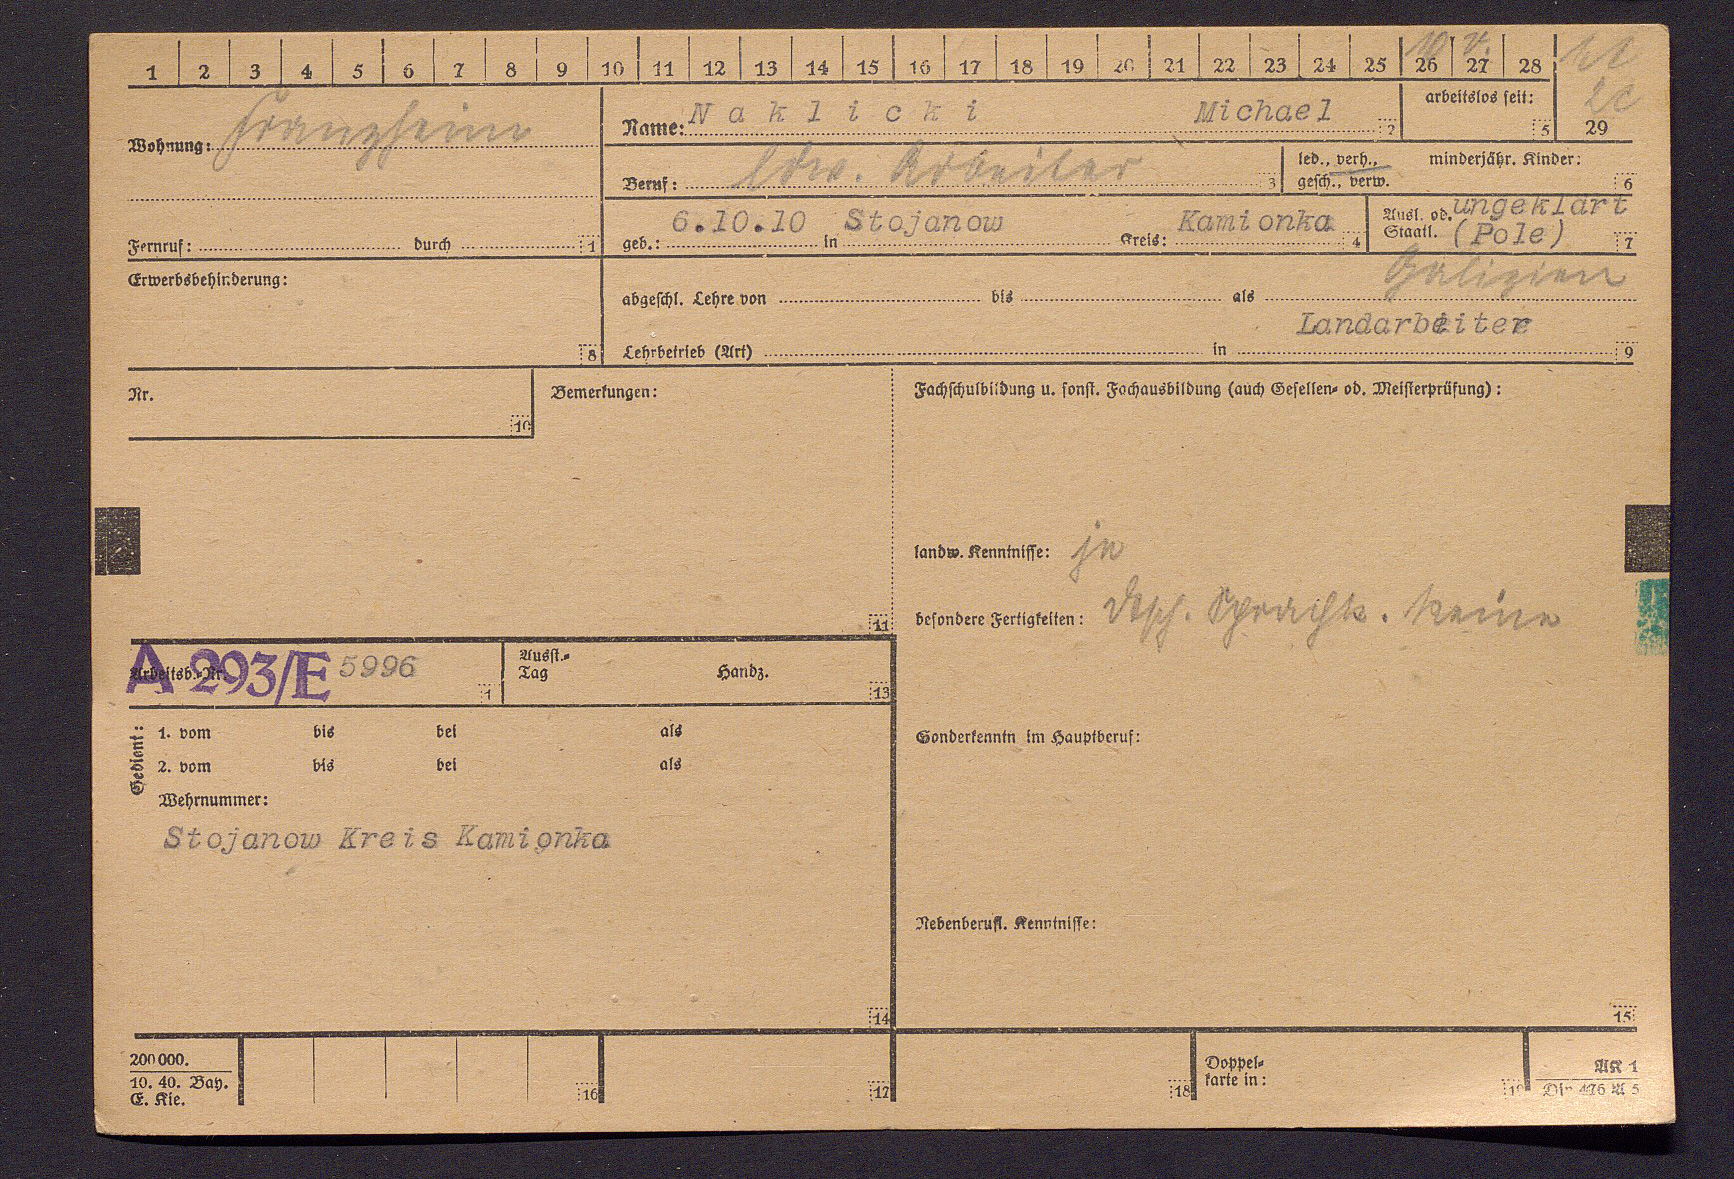 1 2 3 4 5 6 7 8 9 10 11 12 13 14 15 16 17 18 19 20 21 22 23 24 25 26 27 28
Wohnung:
Name: Naklicki Michael 2
arbeitslos seit: 5
29
Beruf: ldw. Arbeiter 3
led., verh., gesch., verw.
minderjähr. Kinder: 6
Fernruf: durch 1
geb.: 6.10.10 in Stojanow Kreis: Kamionka 4
Ausl. od. Staatl. ungeklärt (Pole) 7
Erwerbsbehinderung: 8
Galizien
abgeschl. Lehre von bis als
Landarbeiter
Lehrbetrieb (Art) in 9
Nr. 10
Bemerkungen: 11
Fachschulbildung u. sonst. Fachausbildung (auch Gesellen- od. Meisterprüfung):
landw. Kenntnisse: ja
besondere Fertigkeiten: dtsch. Sprachk. keine
Arbeitsb.-Nr. A 293/E 5996 1
Ausst.-Tag Handz. 13
Gedient:
1. vom bis bei als
2. vom bis bei als
Wehrnummer:
Stojanow Kreis Kamionka
14
Sonderkenntn im Hauptberuf:
Nebenberufl. Kenntnisse:
15
200000.
10. 40. Bay.
E. Kie.
16
17
18
Doppel-
karte in:
AK 1
Din 476 A 5